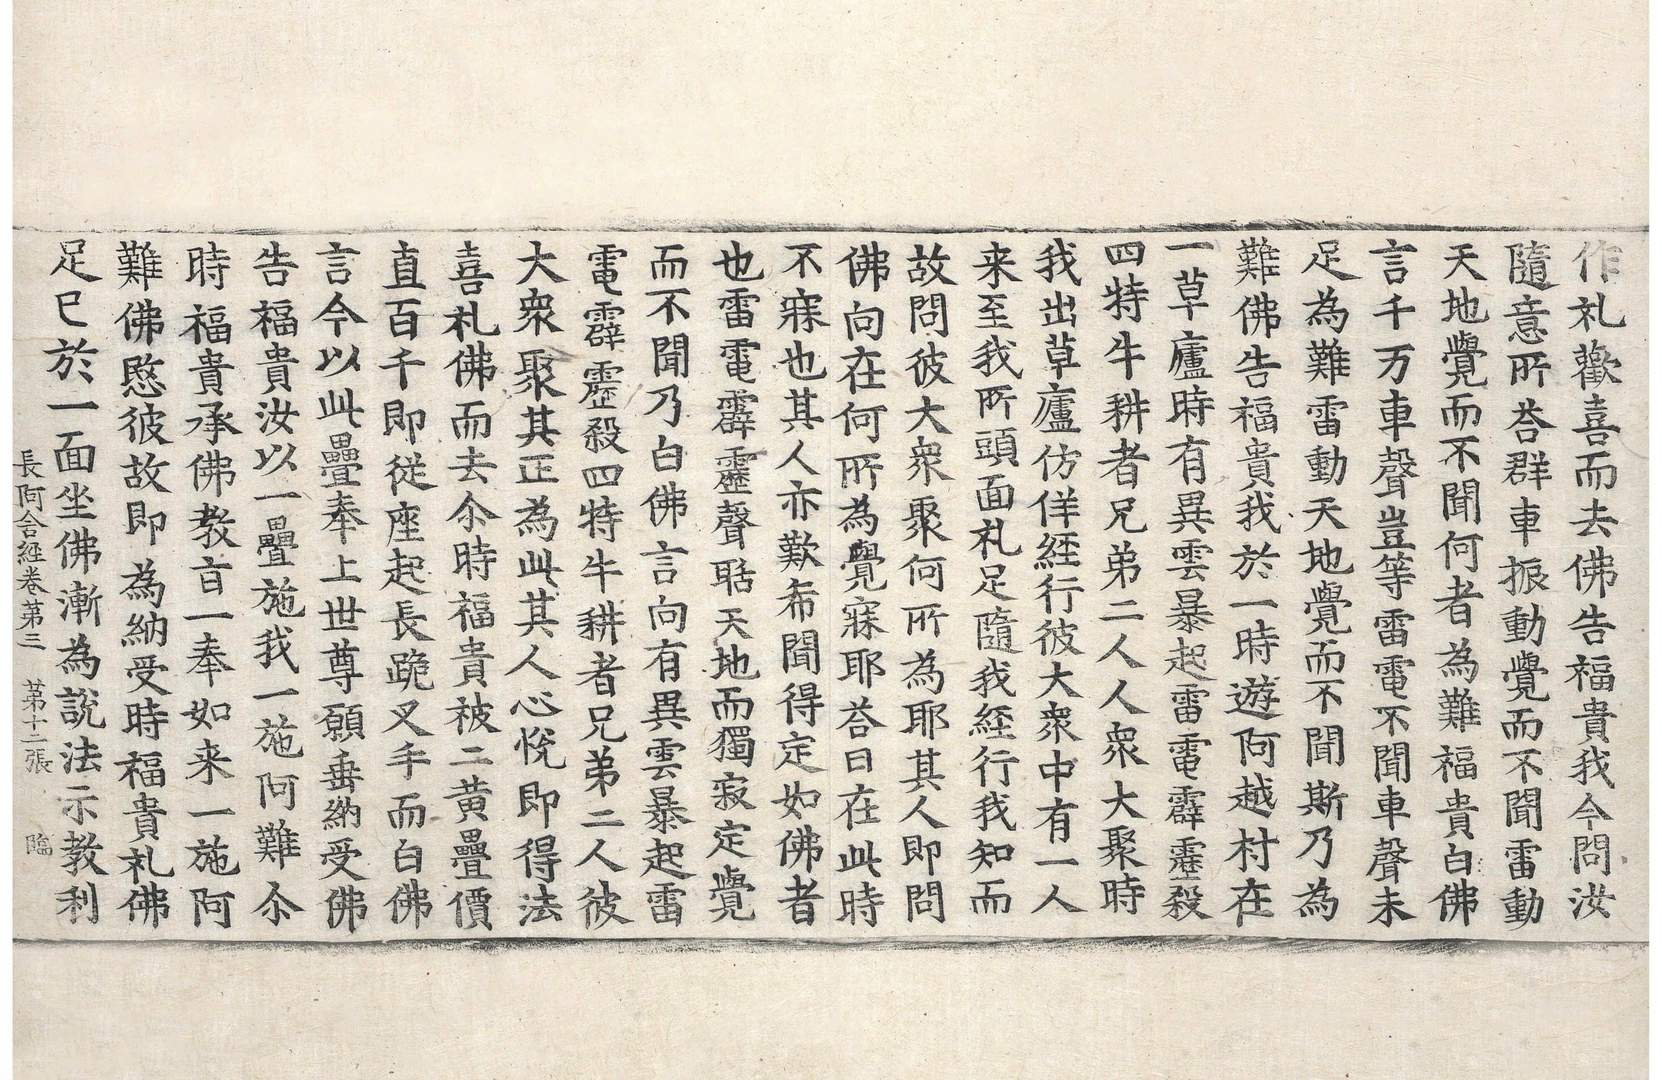 作礼歡喜而去佛告福貴我今問汝
隨意所荅群車振動覺而不聞雷動
天地覺而不聞何者為難福貴白佛
言千万車聲豈等雷電不聞車聲未
足為難雷動天地覺而不聞斯乃為
難佛告福貴我於一時遊阿越村在
一草廬時有異雲暴起雷電霹靂殺
四特牛耕者兄弟二人人衆大聚時
我出草廬仿佯經行彼大衆中有一人
来至我所頭面礼足隨我經行我知而
故問彼大衆聚何所為耶其人即問
佛向在何所為覺寐耶荅曰在此時
不寐也其人亦歎希聞得定如佛者
也雷電霹靂聲聒天地而獨寂定覺
而不聞乃白佛言向有異雲暴起雷
電霹靂殺四特牛耕者兄弟二人彼
大衆聚其正為此其人心悅即得法
喜礼佛而去尒時福貴被二黃疊價
直百千即從座起長跪叉手而白佛
言今以此疊奉上世尊願垂納受佛
告福貴汝以一疊施我一施阿難尒
時福貴承佛教言一奉如来一施阿
難佛愍彼故即為納受時福貴礼佛
足已於一面坐佛漸為說法示教利
長阿含經卷第三 第十二張 臨